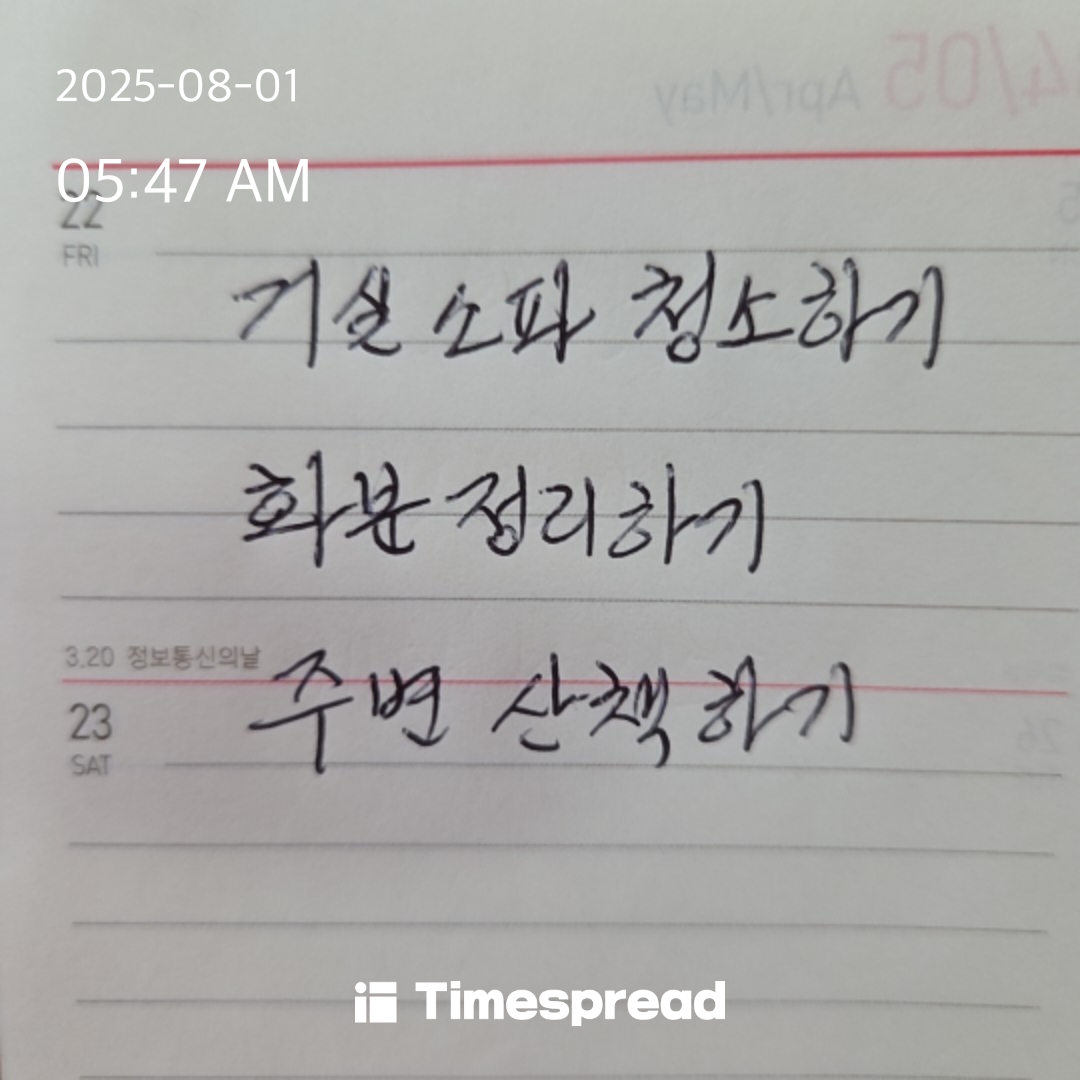 2025-08-01
04/05 Apr/May
05:47 AM
22
FRI
거실 소파 청소하기
화분 정리하기
3.20 정보통신의날
주변 산책하기
23
SAT
26
Timespread